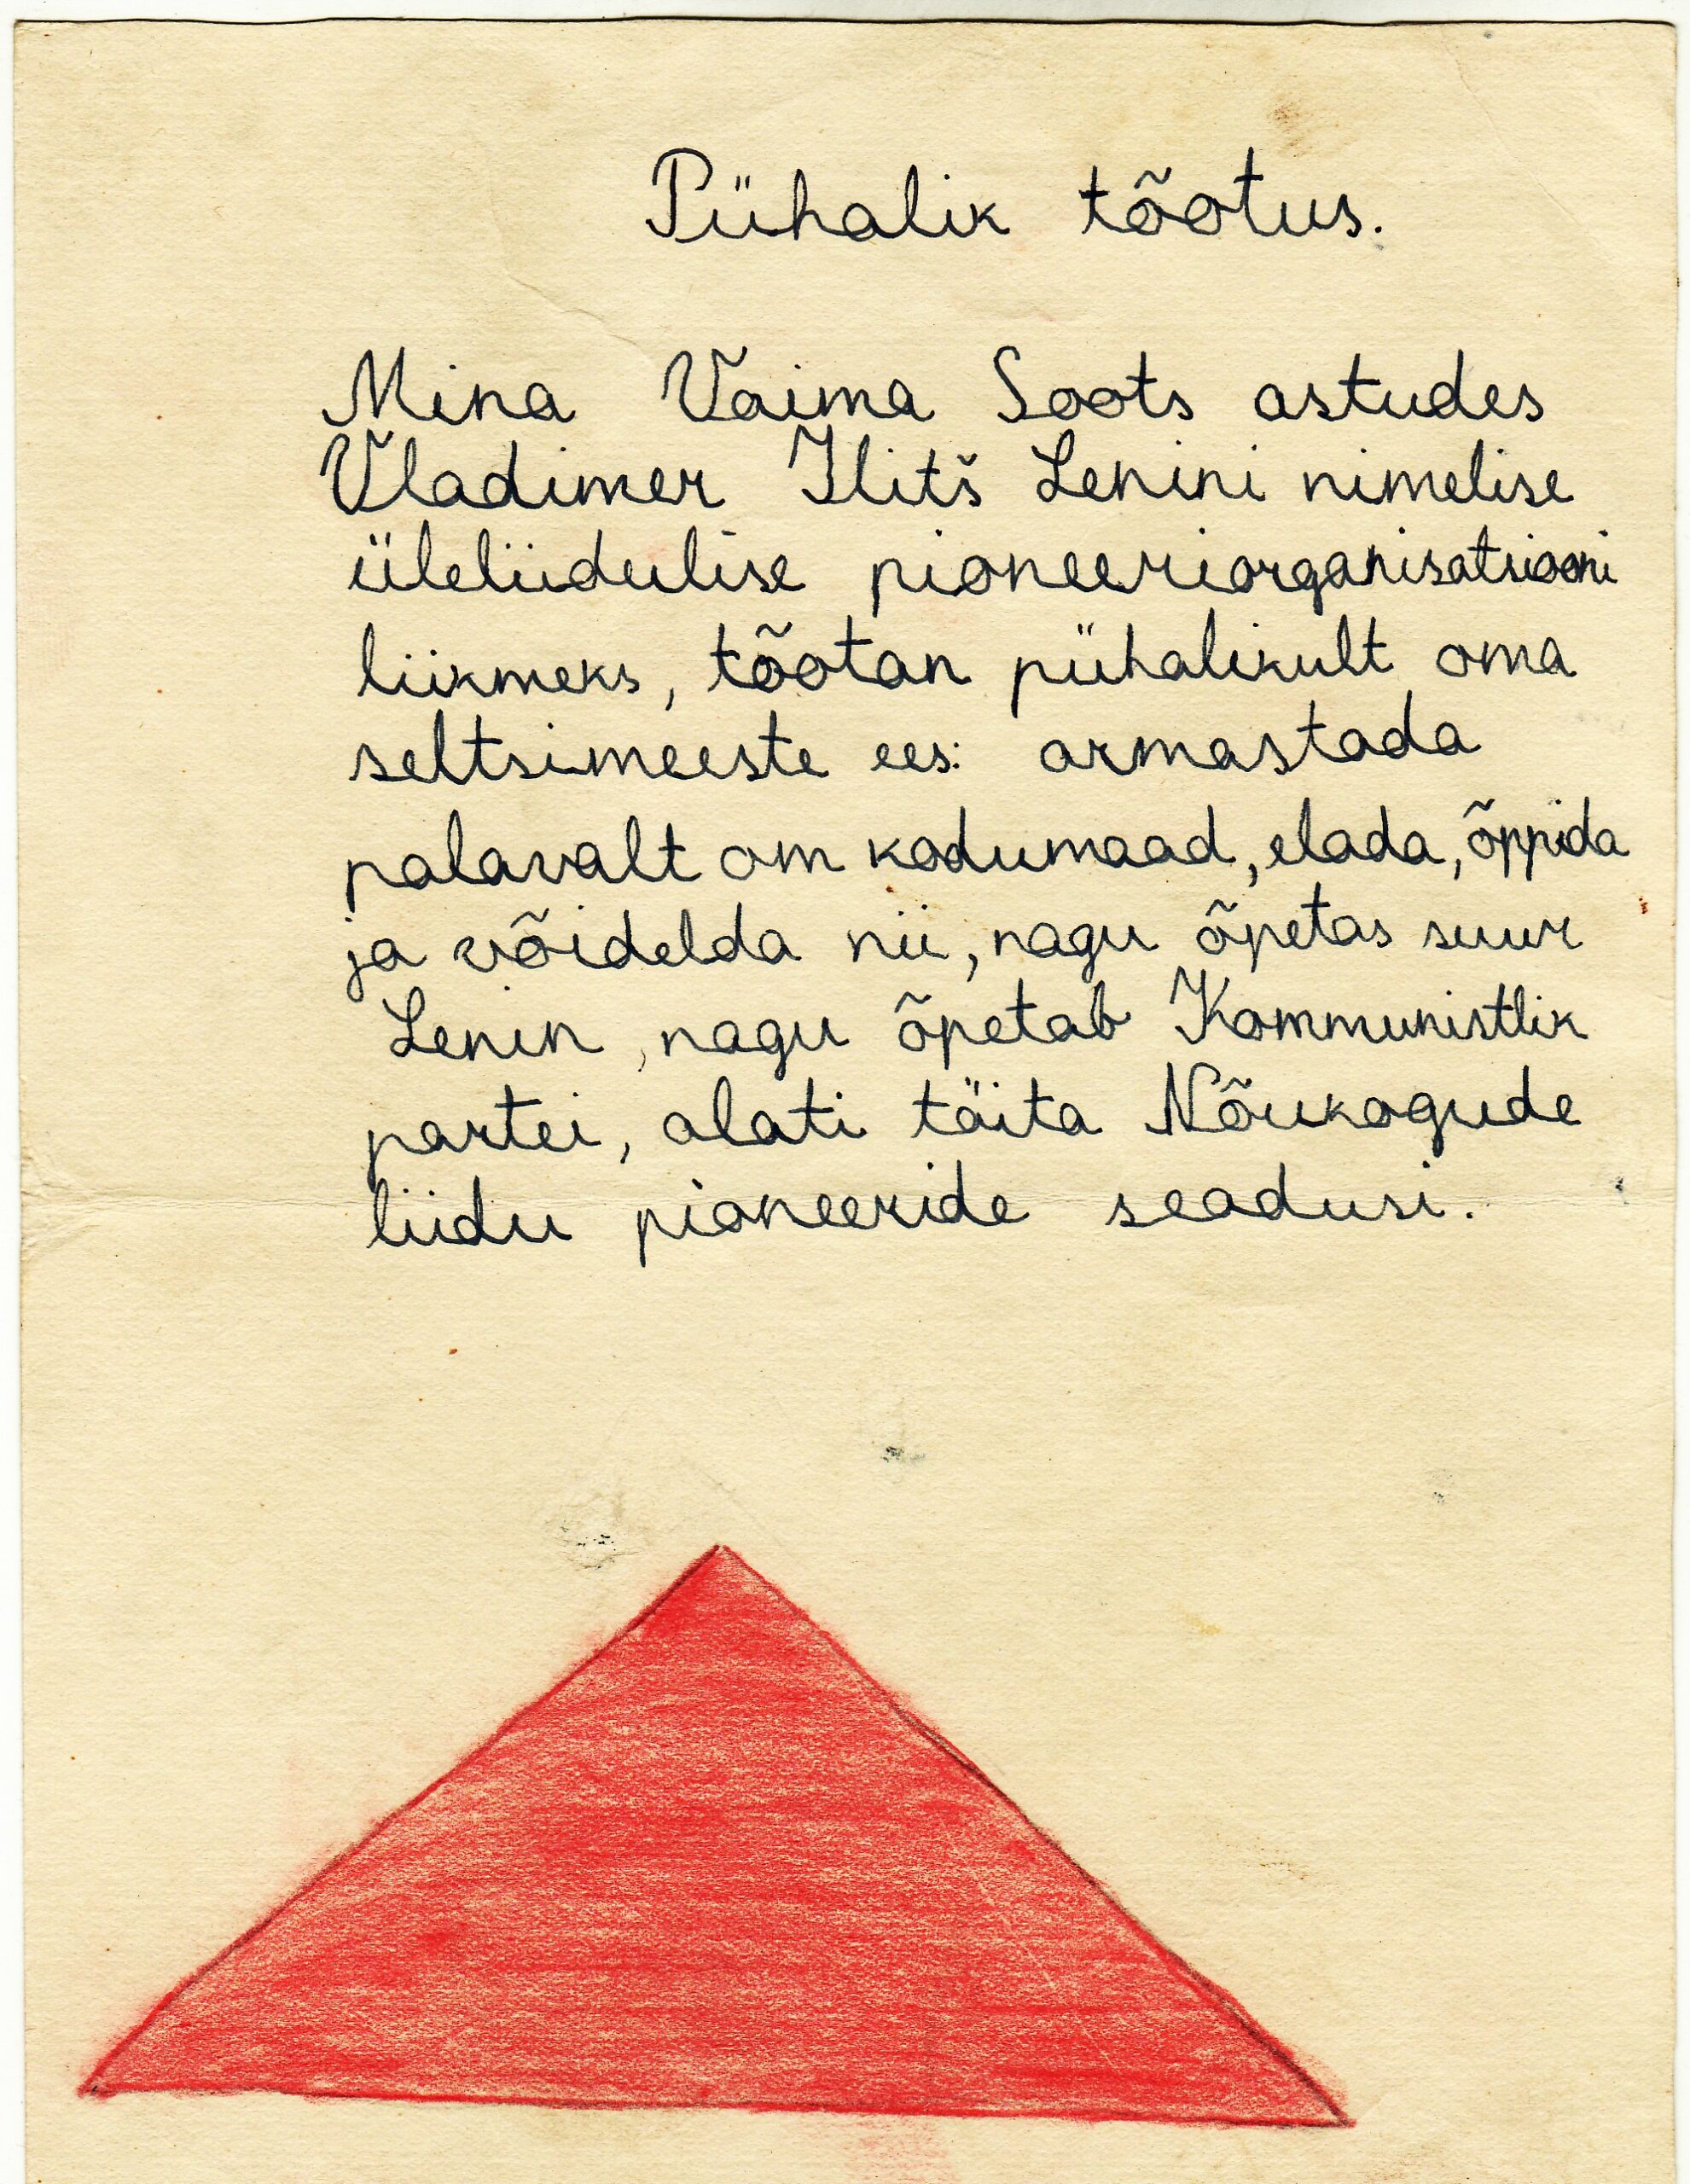 Pühalik tõotus.
Mina Vaima Soots astudes
Vladimer Ilitš Lenini nimelise
üleliidulise pioneeriorganisatsiooni
liikmeks, tõotan pühalikult oma
seltsimeeste ees: armastada
palavalt om kodumaad, elada, õppida
ja võidelda nii, nagu õpetas suur
Lenin, nagu õpetab Kommunistlik
partei, alati täita Nõukogude
liidu pioneeride seadusi.